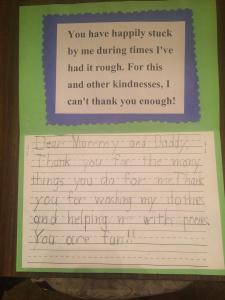 You have happily stuck
by me during times I've
had it rough. For this
and other kindnesses, I
can't thank you enough!
Dear Mommy and Daddy
Thank you for the many
things you do for me. Thank
you for washing my clothes
and helping with poems
You are fun!!